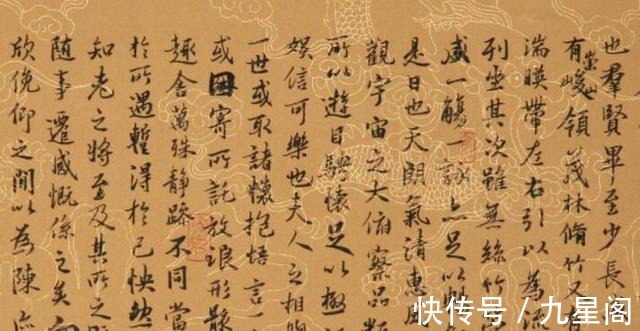 也羣賢畢至少長
有崇山峻領茂林脩竹又
湍暎帶左右引以為流
列坐其次雖無絲竹
盛一觴一詠亦足以暢
是日也天朗氣清惠
觀宇宙之大俯察品類
所以遊目騁懷足以極
娛信可樂也夫人之相
一世或取諸懷抱悟言一
或因寄所託放浪形骸
趣舍萬殊靜躁不同當
於所遇暫得於己怏然
知老之將至及其所之
隨事遷感慨係之矣向
欣俛仰之閒以為陳迹
快传号／九星阁